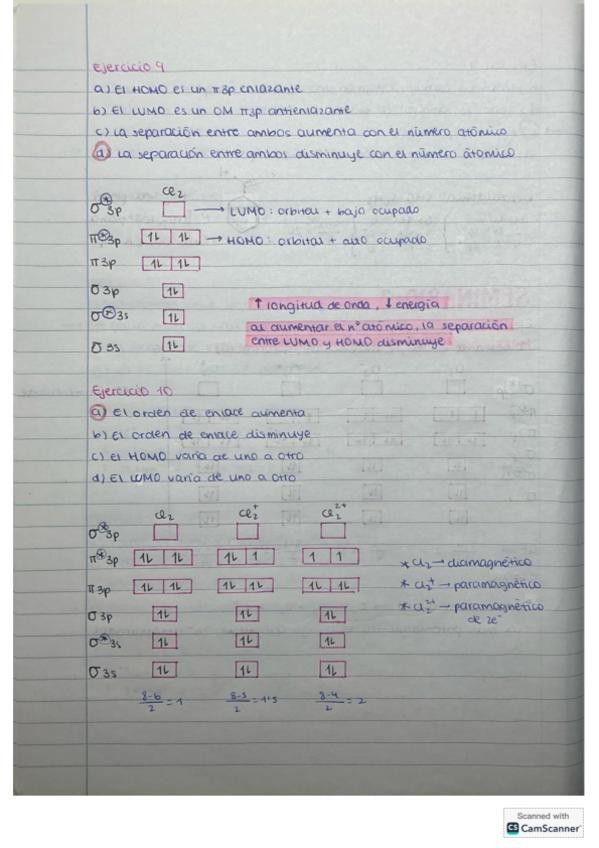 Ejercicio 9
a) El HOMO es un π3p enlazante
b) El LUMO es un OM π3p antienlazante
c) La separación entre ambos aumenta con el número atómico
d) La separación entre ambos disminuye con el número átomico
Cl2
σ*3p → LUMO: orbital + bajo ocupado
π*3p 1L 1L → HOMO: orbital + alto ocupado
π3p 1L 1L
σ3p 1L
↑ longitud de onda, ↓ energía
σ*3s 1L
al aumentar el nº atómico, la separación
entre LUMO y HOMO disminuye
σ3s 1L
Ejercicio 10
a) El orden de enlace aumenta
b) El orden de enlace disminuye
c) el HOMO varia de uno a otro
d) El LUMO varia de uno a otro
Cl2 Cl2+ Cl2 2+
σ*3p
π*3p 1L 1L 1L 1 1 1
* Cl2 → diamagnético
π3p 1L 1L 1L 1L 1L 1L
* Cl2+ → paramagnético
σ3p 1L 1L 1L
* Cl2 2+ → paramagnético
de 2e-
σ*3s 1L 1L 1L
σ3s 1L 1L 1L
8-6/2 = 1 8-5/2 = 1'5 8-4/2 = 2
Scanned with
CS CamScanner